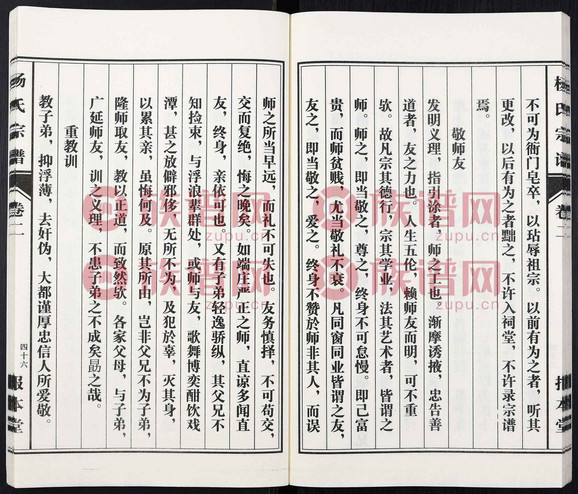 不可为衙门皂卒，以玷辱祖宗。以前有为之者，听其
更改，以后有为之者黜之，不许入祠堂，不许录宗谱
焉。
敬师友
发明义理，指引迷途者，师之工也。渐摩诱掖，忠告善
道者，友之力也。人生五伦，赖师友而明，可不重
欤。故凡宗其德行，宗其学业，法其艺术者，皆谓之
师。师之，即当敬之，尊之，终身不可怠慢。即己富
贵，而师贫贱，尤当敬礼不衰。凡同窗同业皆谓之友，
友之，即当敬之，爱之。终身不赞於师非其人，而误
杨氏宗谱
卷二
报本堂
师之所当早远，而礼不可失也。友务慎择，不可苟交，
交而复绝，悔之晚矣。如端庄严正之师，直谅多闻直
友，终身，亲依可也。又有子弟轻逸骄纵，其父兄不
知捡束，与浮浪辈群处，或师与友，歌舞博奕酣饮戏
潭，甚之放僻邪侈，无所不为，及犯於辜，灭其身，
以累其亲，虽悔何及。原其所由，岂非父兄不为子弟，
隆师取友，教以正道，而致然欤。各家父母，与子弟，
广延师友，训之义理，不患子弟之不成矣勗之哉。
重教训
教子弟，抑浮薄，去奸伪，大都谨厚忠信人所爱敬。
杨氏宗谱
卷二
四十六
报本堂
族谱网
zupu.cn
族谱网
zupu.cn
族谱网
zupu.cn
族谱网
zupu.cn